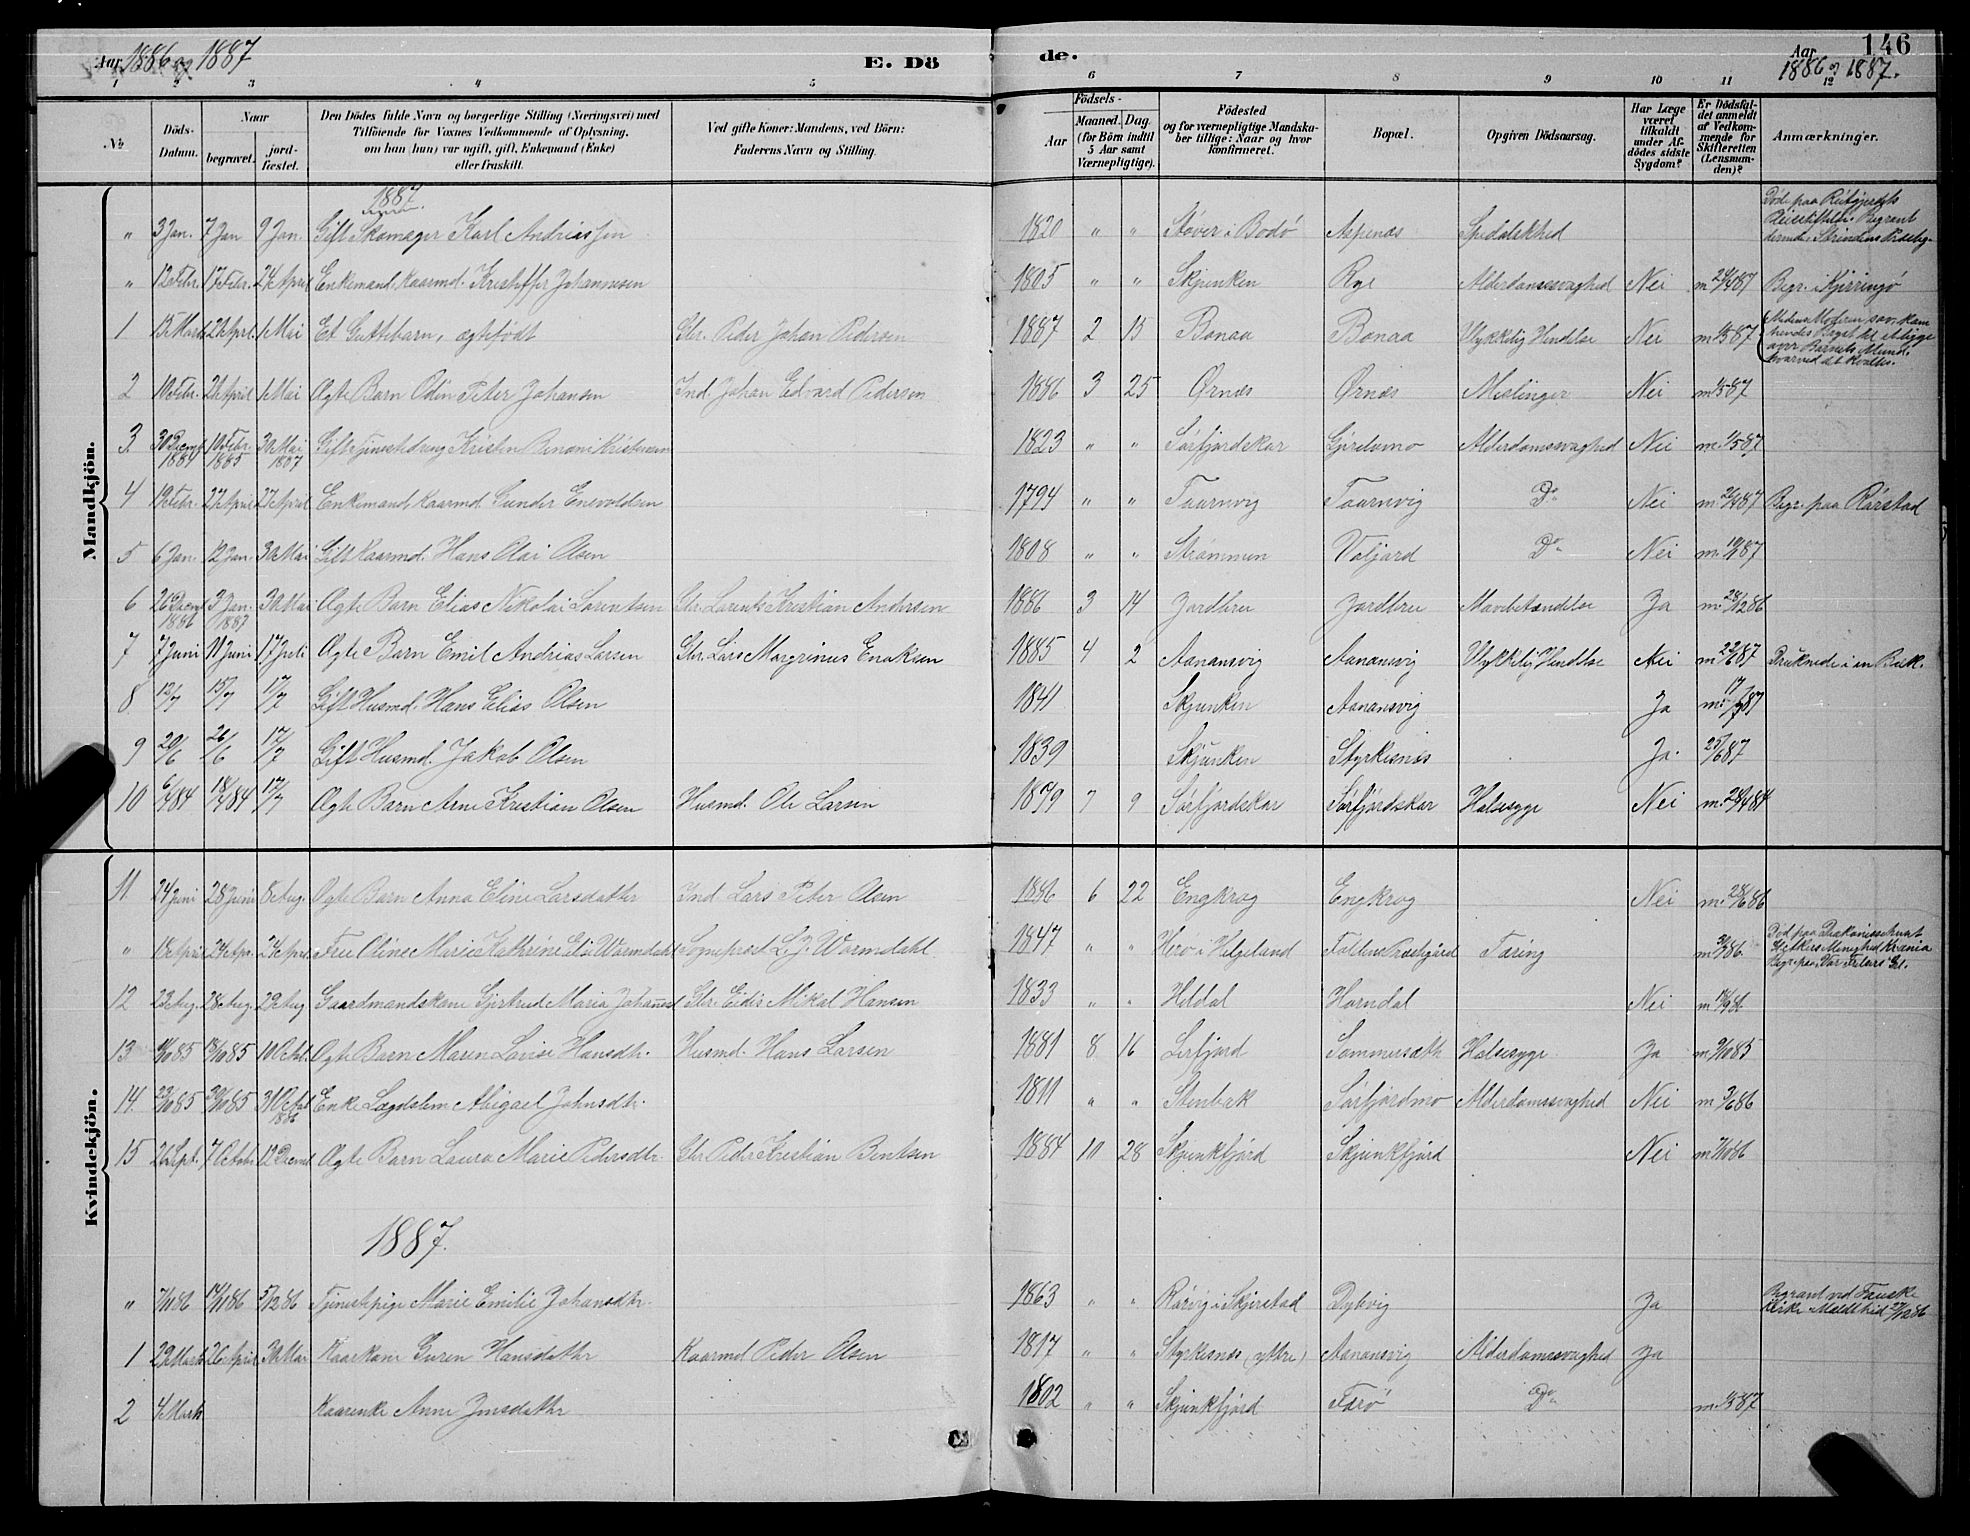 Aar 1886 og 1887 E. Dö de. Aar 1886 og 1887. 146
1 2 3 4 5 6 7 8 9 10 11 12
No. Döds-Datum. Naar begravet. jordfæstet. Den Dödes fulde Navn og borgerlige Stilling (Næringsvei) med Tilföiende for Voxnes Vedkommende af Oplysning, om han (hun) var ugift, gift, Enkemand (Enke) eller fraskilt. Ved gifte Koner: Mandens, ved Börn: Faderens Navn og Stilling. Födsels- Aar Maaned. Dag (for Börn indtil 5 Aar samt Værnepligtige). Födested og for værnepligtige Mandskaber tillige: Naar og hvor konfirmeret. Bopæl. Opgiven Dödsaarsag. Har Læge været tilkaldt under Afdödes sidste Sygdom? Er Dödsfaldet anmeldt af Vedkommende for Skifteretten (Lensmanden)? Anmærkninger.
Mandkjön.
1887.
" 3 Jan. 7 Jan 9 Jan. Gift Skomager Karl Andreas Jen 1820 " " Støver i Bodø Aspenæs Spedalskhed Døde paa Reitgjerdets Pleiestiftelse. Begravet
" 12 Febr. 17 Febr. 24 April Enkemand, Kaarmd. Kristoffer Johannesen 1805 " " Skjunken Rye Alderdomssvaghed Nei m 24/4 87 Begr. i Kjerringø
1 15 Marts 24 April. 1 Mai Et Guttebarn, ægtefødt Str. Peder Johan Pedersen 1887 2 15 Bonaa Bonaa Ulykkelig Hændelse Nei m 1/5 87 Medens Moderen sov, kom hendes Bryst til at ligge over Barnets Mund, hvorved det kvaltes.
2 10 Febr. 24 April 1 Mai Ægte Barn Odin Peter Johansen Ind. Johan Edvard Pedersen 1886 3 25 Ørnæs Ørnæs Meslinger Nei m 1/5 87
3. 30 Decmb 1884 10 Febr. 1885 30 Mai 1887 Gift Kristen Benoni Kristensen 1823 " " Sørfjordskar Gjerelvmo Alderdomssvaghed Nei m. 1/5 87
4 19 Febr. 27 April 27 April Enkemand, Kaarmd. Gunder Enevoldsen 1794 " " Taarnvig Taarnvig Do Nei m 26/4 87 Begr. paa Rørstad
5 6 Jan. 12 Jan. 30 Mai Gift Kaarmd. Hans Olai Olsen 1808 " " Strømmen Valjord Do Nei m. 10/1 87
6 26 Decmb 1886 3 Jan. 1887 30 Mai Ægte Barn Elias Nikolai Larentsen Str. Larents Kristian Andersen 1886 3 14 Jordbru Jordbru Mavebetændelse Ja m. 28/12 86
7 7 Juni 11 Juni 17 Juli Ægte Barn Emil Andreas Larsen Str. Lars Margrinus Enoksen 1885 4 2 Aanansvig Aanansvig Ulykkelig Hændelse Nei m 22/6 87 Druknede i en Bæk.
8 12/7 15/7 17/7 Gift Husmd. Hans Elias Olsen 1841 Skjunken Aanansvig Ja m. 17/7 87
9 20/6 26/6 17/7 Gift Husmd. Jakob Olsen 1839 Skjunken Styrkesnæs Ja. 25/6 87
10 6/4 84 18/4 84 17/7 Ægte Barn Arne Kristian Olsen Husmd. Ole Larsen 1879 7 9 Sørfjordskar Sørfjordskar Halssyge Nei m. 20/4 84
Kvindekjön.
11. 24 Juni 28 Juni 8 Aug. Ægte Barn Anna Eline Larsdatter Ind. Lars Peter Olsen 1886 6 22 Engkrog Engkrog Nei m. 28/6 86
" 18 April 24 Apr. 24 Apr. Frue Oline Marie Kathrine Elis Wormdahl Sogneprest L. J. Wormdahl 1847 " " Herø i Helgeland Foldens Præstgård Tæring Død paa Diakonisse Kirkegr. paa Vor Frelsers Gd.
12 23 Aug. 28 Aug. 29 Aug Gaardmandskone Gjertrud Maria Johannesd Str. Eidis Mikal Hansen 1833 " " Heldal Horndal Nei m 19/9 86
13 10/10 85 18/10 85 10 Octb. Ægte Barn Maren Lovise Hansdtr. Husmd. Hans Larsen 1881 8 16 Leifjord Sommersæth Halssyge Ja m 9/10 85
14. 23/10 85 30/10 85 31 Octbr 1886 Enke Lægdslem Abigael Johnsdtr. 1811 " " Stenbak Sørfjordmo Alderdomssvaghed Nei m 3/6 86
15 26 Sept. 7 Octobr. 12 Decmb Ægte Barn Laura Marie Pedersdtr. Str Peder Kristian Bentsen 1884 10 28 Skjunkfjord Skjunkfjord Nei m 7/10 86
1887.
" 7/11 86 14/11 86 5/12 86 Tjenestepige Marie Emilie Johansdtr. 1863 " " Rørvig i Skjerstad Dybvig Ja Begravet ved Fauske Kirke 27/12 86
1 29 Marts 26 April 30 Mai Kaarkone Guren Hansdatter Kaarmd Peder Olsen 1817 " " Styrkesnæs (ytre) Aanansvig Alderdomssvaghed Ja
2 4 Marts Kaarenke Anne Jensdatter 1802 " " Skjunkfjord Færø Do m. 1/5 87